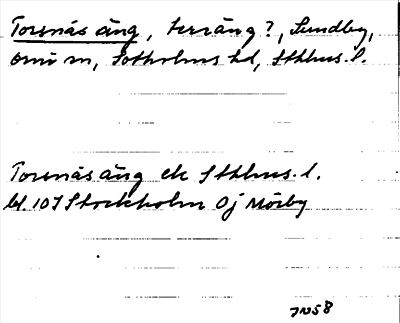 Torsnäs äng, terräng?, Sundby,
Ornö sn, Sotholms hd, Sthlms l.
Torsnäsäng ek Sthlms l.
bl. 10J Stockholm 0j Mörby
JN58